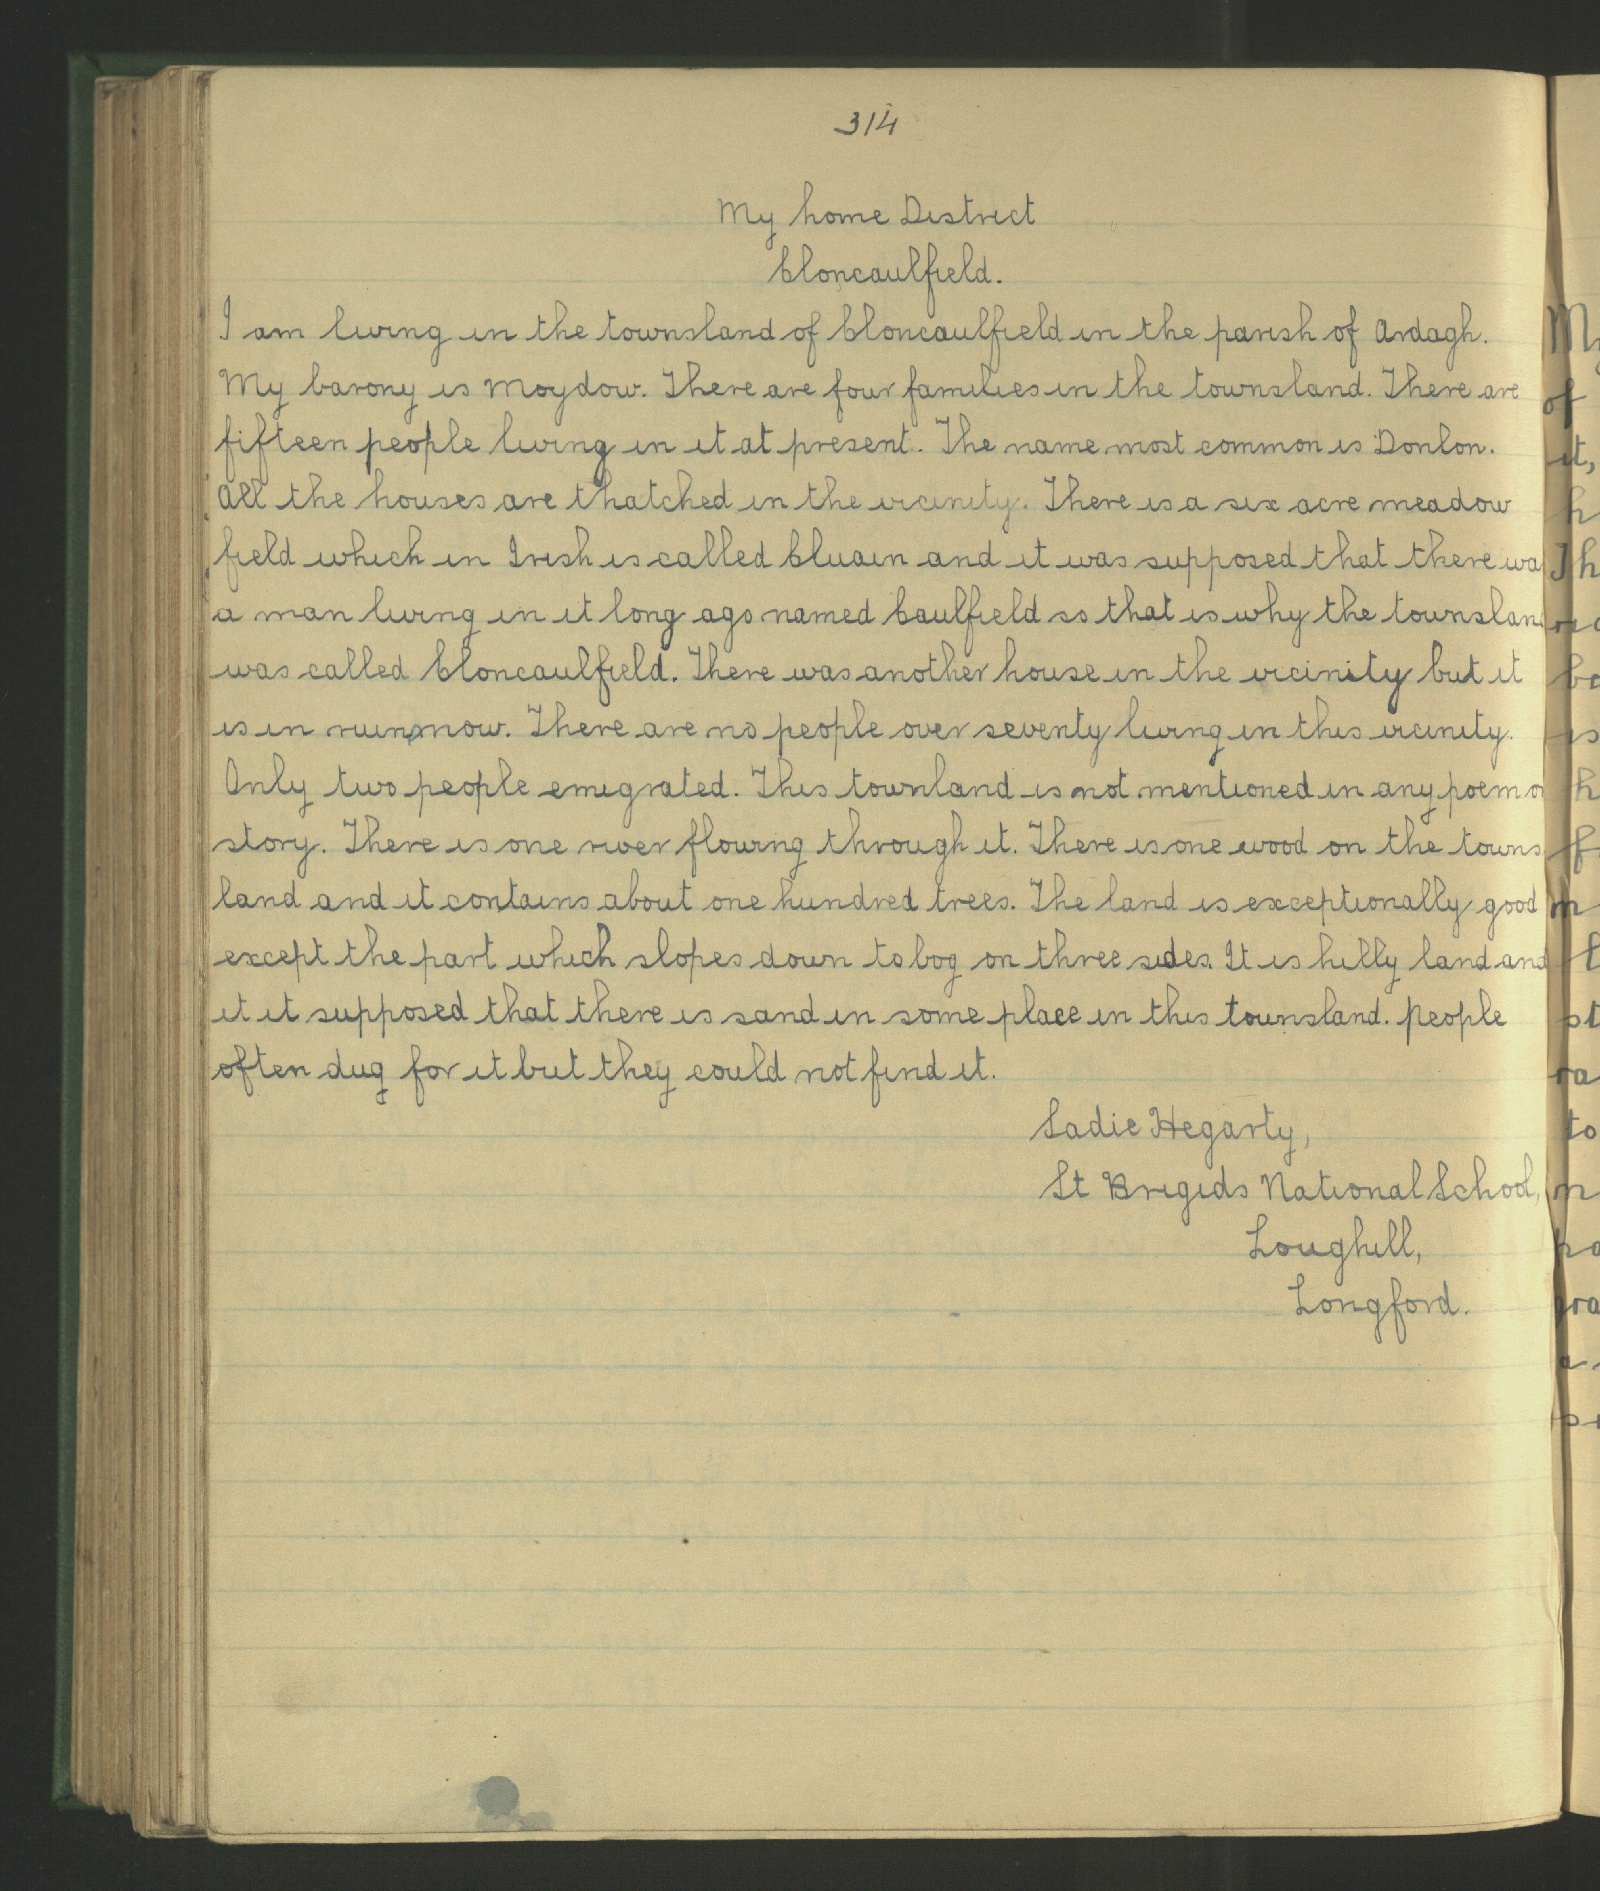 314
My home District
Cloncaulfield.
I am living in the townsland of Cloncaulfield in the parish of Ardagh.
My barony is Moydow. There are four families in the townsland. There are
fifteen people living in it at present. The name most common is Donlon.
All the houses are thatched in the vicinity. There is a six acre meadow
field which in Irish is called Cluain and it was supposed that there wa
a man living in it long ago named Caulfield so that is why the townsland
was called Cloncaulfield. There was another house in the vicinity but it
is in ruins now. There are no people over seventy living in this vicinity.
Only two people emigrated. This townland is not mentioned in any poem or
story. There is one river flowing through it. There is one wood on the towns
land and it contains about one hundred trees. The land is exceptionally good
except the part which slopes down to bog on three sides. It is hilly land and
it it supposed that there is sand in some place in this townsland. People
often dug for it but they could not find it.
Sadie Hegarty,
St Brigids National School,
Loughill,
Longford.